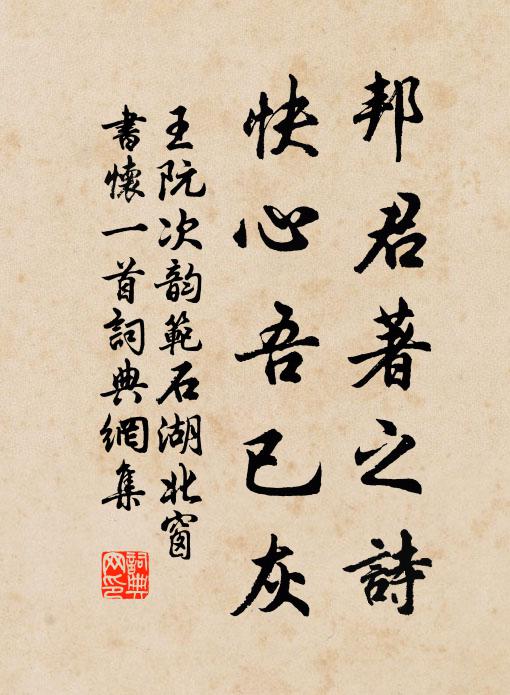 邦君著之詩
快心吾已灰
王阮次韵範石湖北窗
書懷一首詞典網集
詞典网印